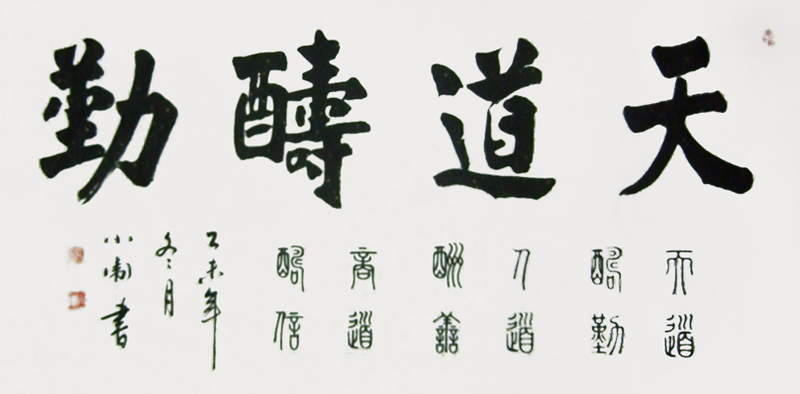 天道醻勤
天道
酬勤
人道
酬善
商道
酬信
乙未年
冬月
小 書